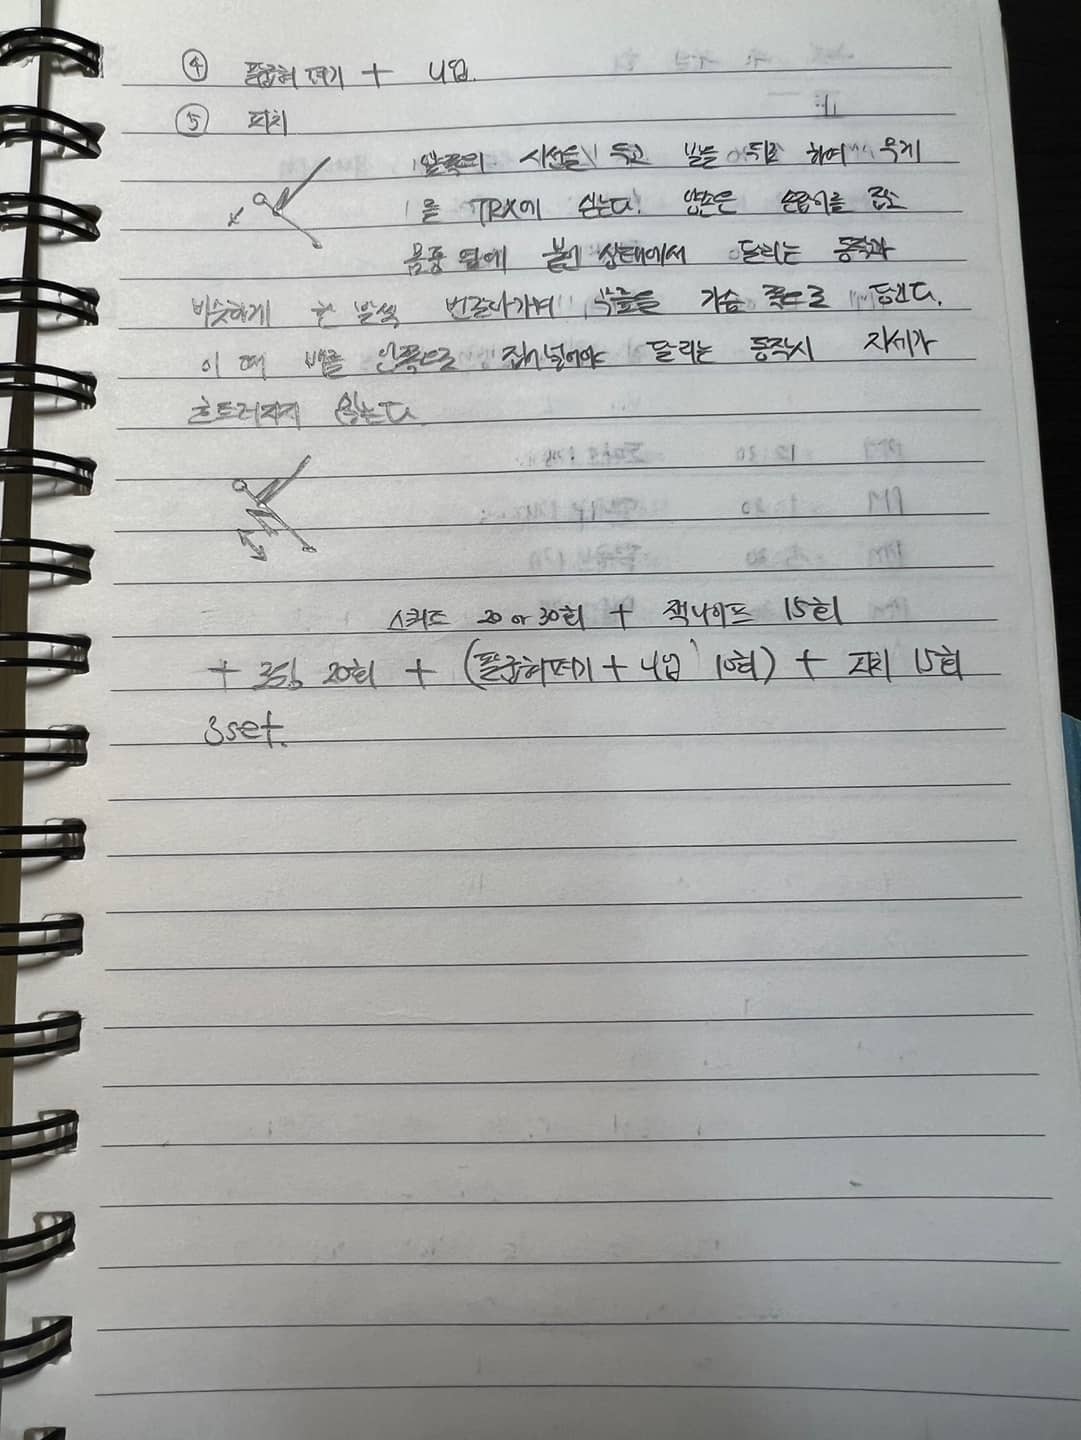 ④ 팔굽혀펴기 + 니업.
⑤ 피치
앞쪽의 시선을 두고 발을 뒤로 하여 무게
를 TRX에 싣는다. 양손은 손잡이를 잡고
몸통 옆에 붙인 상태에서 달리는 동작과
비슷하게 한 발씩 번갈아가며 무릎을 가슴 쪽으로 당긴다.
이 때 배를 안쪽으로 집어넣어야 달리는 동작시 자세가
흐트러지지 않는다.
스쿼트 20 or 30회 + 잭나이프 15회
+ 20회 + (팔굽혀펴기 + 니업 10회) + 피치 15회
3set.